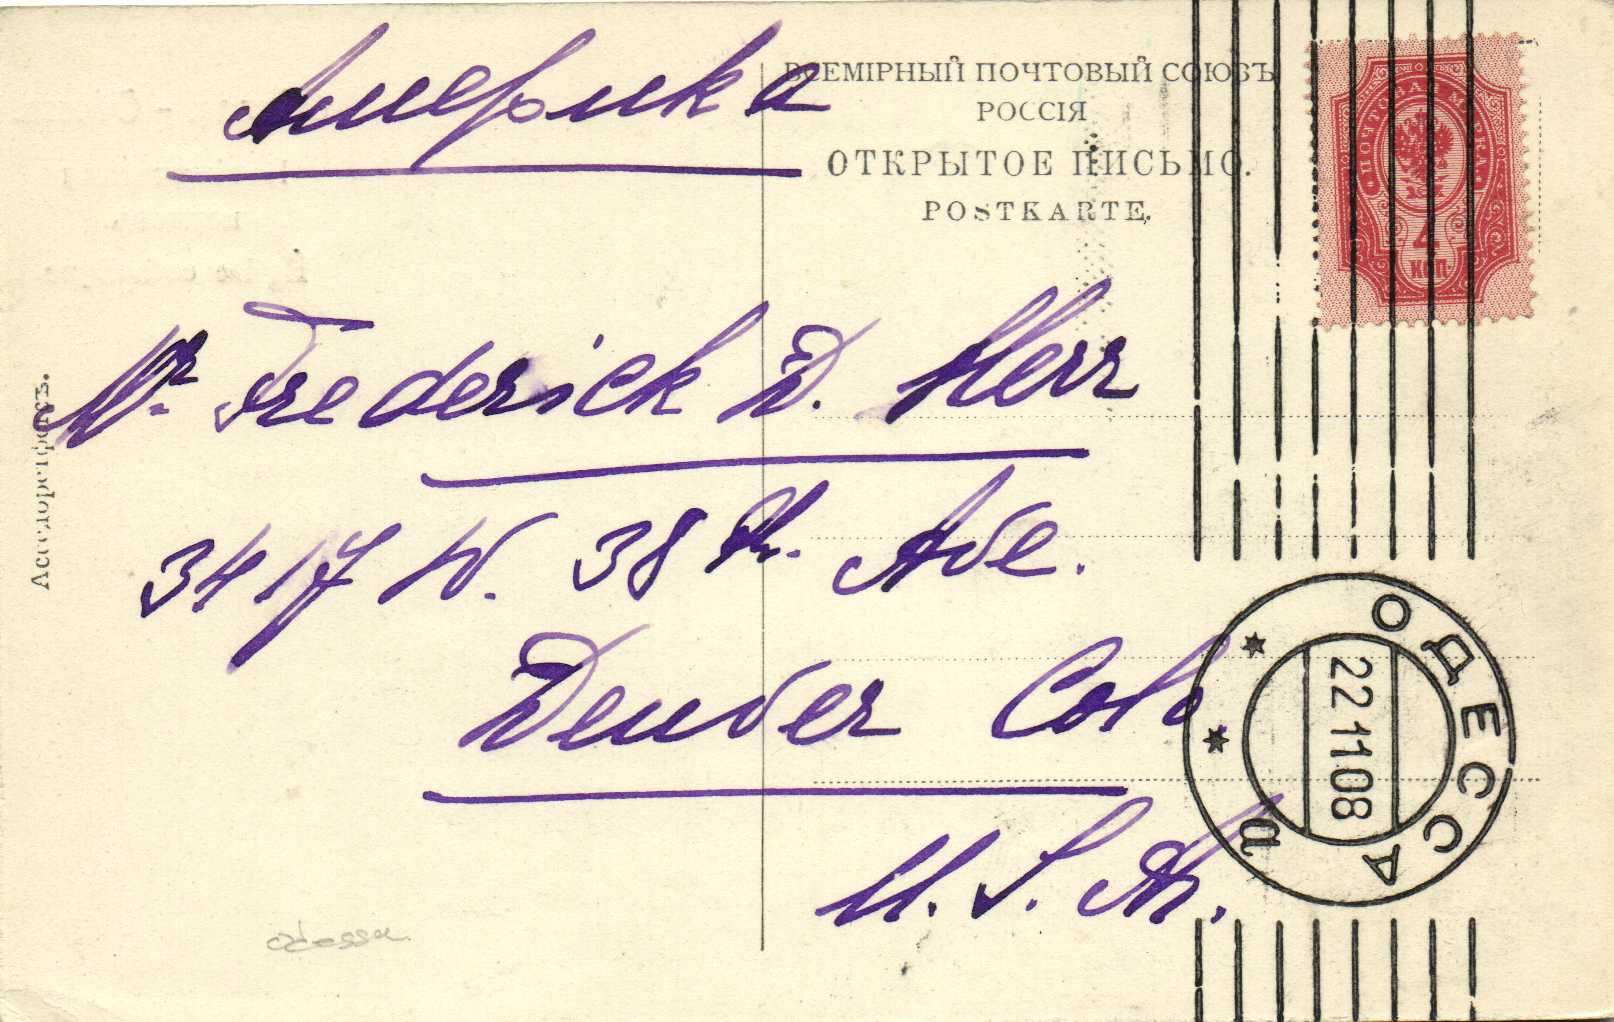 Америка
ВСЕМІРНЫЙ ПОЧТОВЫЙ СОЮЗЪ
РОССІЯ
ОТКРЫТОЕ ПИСЬМО.
POSTKARTE.
ПОЧТОВАЯ МАРКА
4
КОП
Mr. Frederick D. Herr
3417 W. 38th. Ave.
Denver Colo
U. S. A.
ОДЕССА
22 11 08
а
Асседоретфехтъ.
odessa